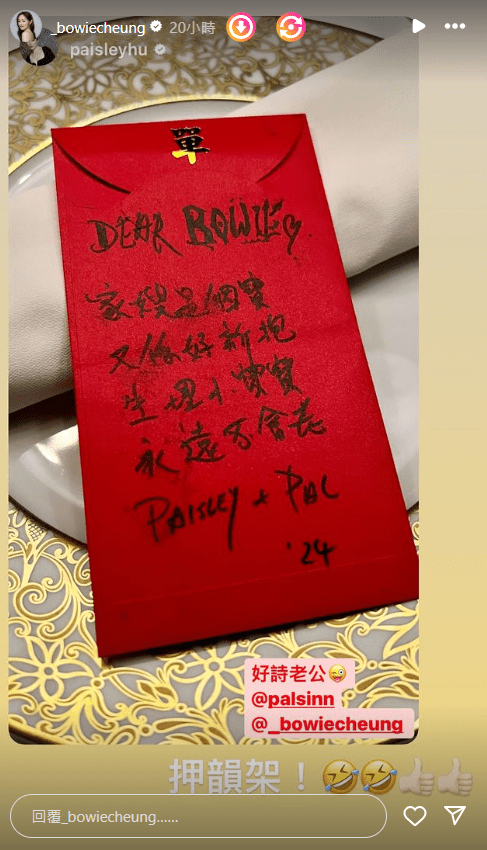 _bowiecheung 20小時
paisleyhu
單
DEAR BOWIE
家嫂是個寶
又係好新抱
生埋小寶寶
永遠不會老
PAISLEY + PAL
'24
好詩老公😜
@palsinn
@_bowiecheung
押韻架！🤣🤣👍👍
回覆_bowiecheung......